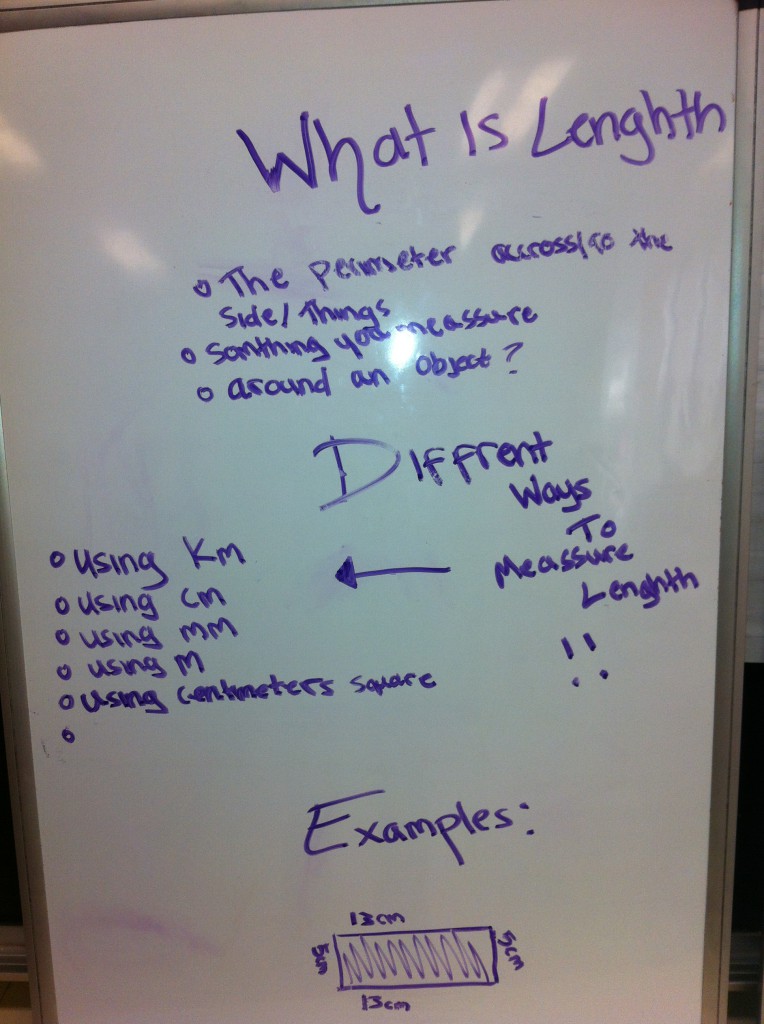 What Is Lenghth
The perimeter accross/to the
side/things
Somthing you meassure
around an object?
Diffrent
Ways
To
Meassure
Lenghth
!!
using Km
using cm
using mm
using M
using centimeters square
Examples:
13cm
5cm
5cm
13cm